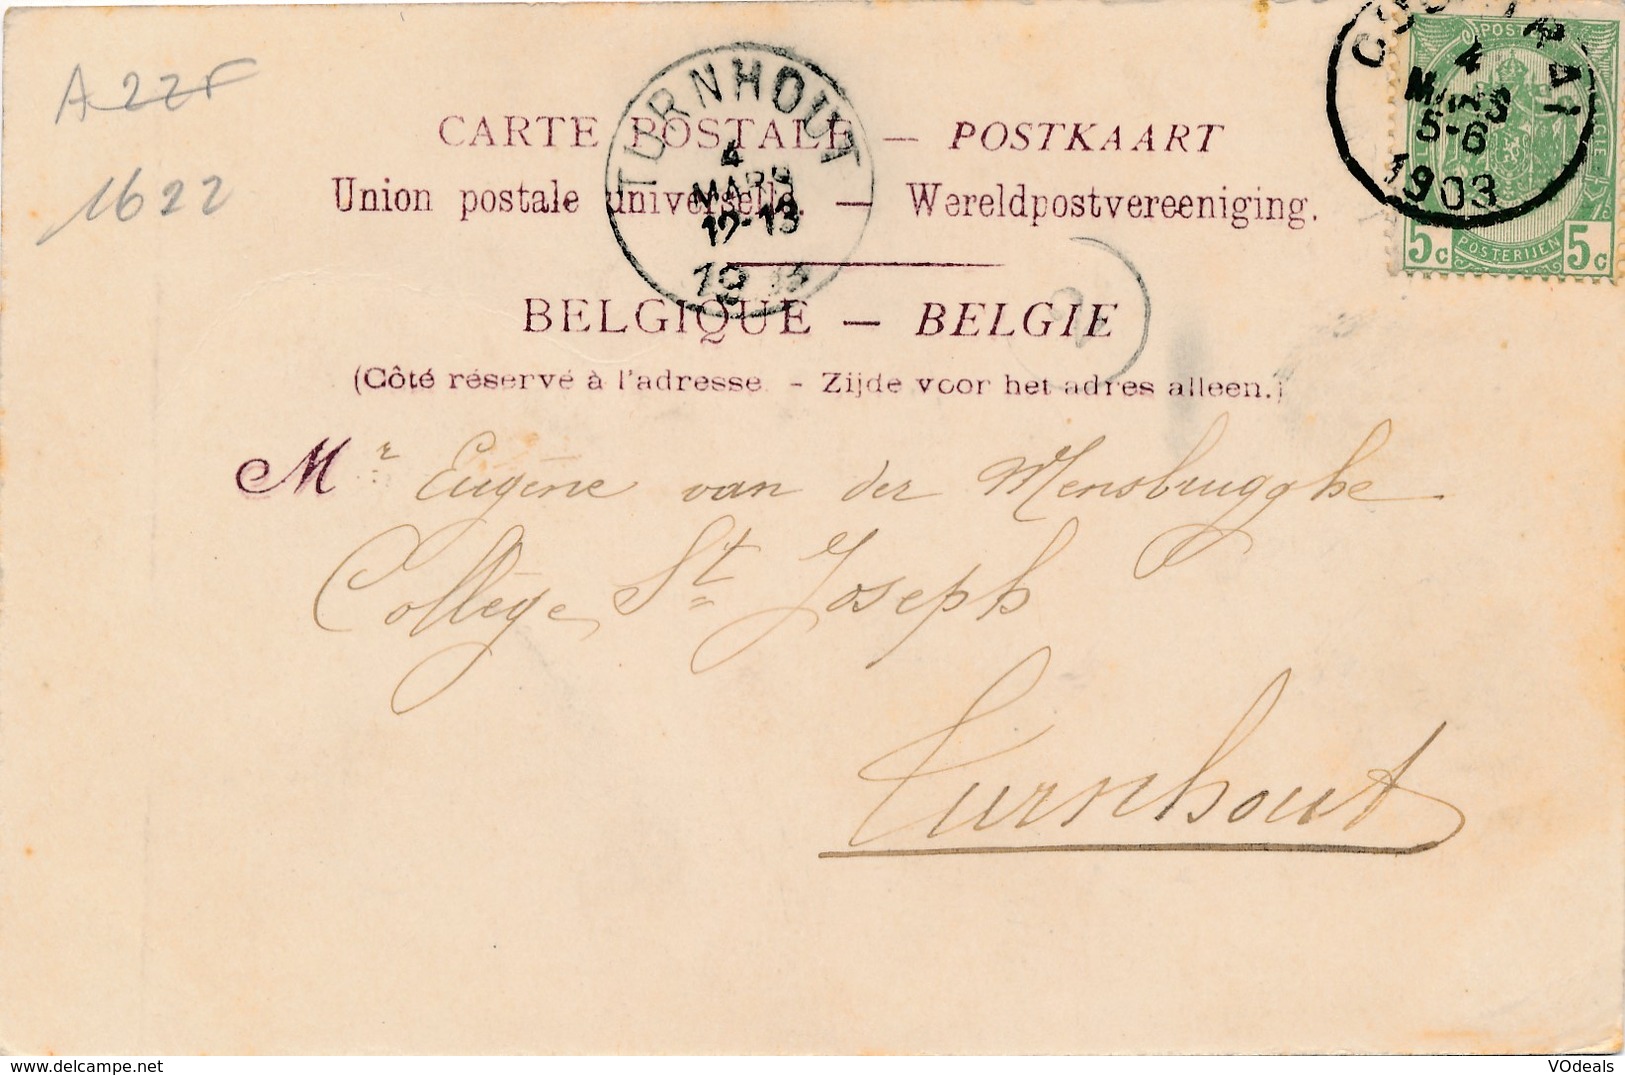 A22F
1622
CARTE POSTALE — POSTKAART
Union postale universelle. — Wereldpostvereeniging.
BELGIQUE — BELGIE
(Côté réservé à l'adresse. - Zijde voor het adres alleen.)
TURNHOUT
4
MARS
12-13
4
MARS
5-6
1903
POSTERIJEN
5c
5c
Mr Eugène van der Mensbrugghe
Collège St Joseph
Turnhout
VOdeals